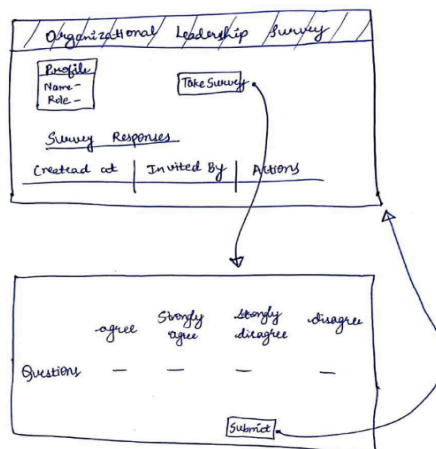 Organizational Leadership Survey
Profile
Name -
Role -
Take Survey
Survey Responses
Created at | Invited By | Actions
agree Strongly agree Strongly disagree disagree
Questions — — — —
Submit